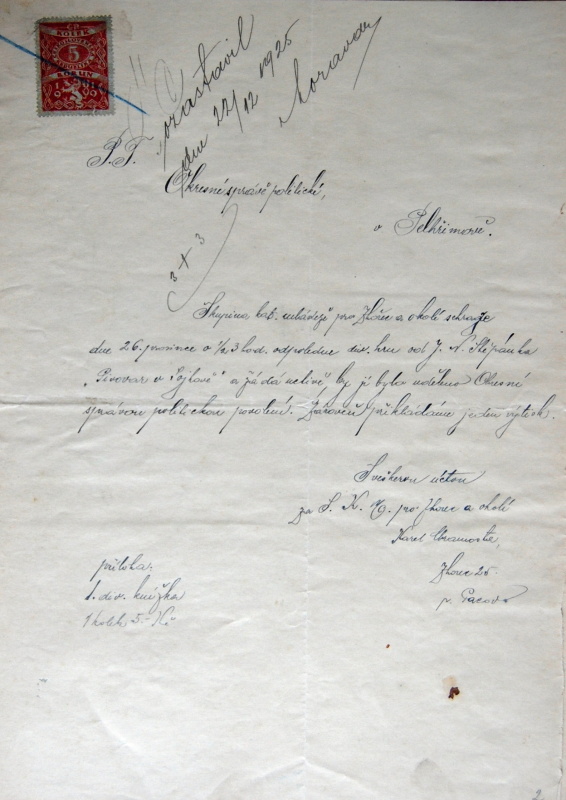 KOLEK
5
KORUN
dne 22/12 1925
P. T.
Okresní správě politické,
v Pelhřimově.
3 + 3
Skupina kat. mládeže pro Zhořec a okolí sehraje
dne 26. prosince o ½ 3 hod. odpoledne div. hru od J. N. Štěpánka
„Pivovar v Sojkově" a žádá uctivě, by jí bylo uděleno Okresní
správou politickou povolení. Zároveň přikládáme jeden výtisk.
Veškerou úctou
za S. K. M. pro Zhořec a okolí
Karel
Zhořec 25.
p. Pacov
příloha:
1. div. knížka
1 kolek 5.- Kč
2